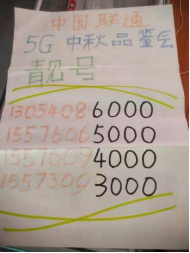 中国联通
5G 中秋品鉴会
靓号
13054086000
15576065000
15576094000
15573003000